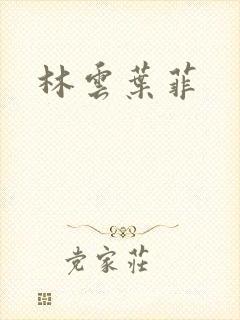 林雲葉菲
党家莊